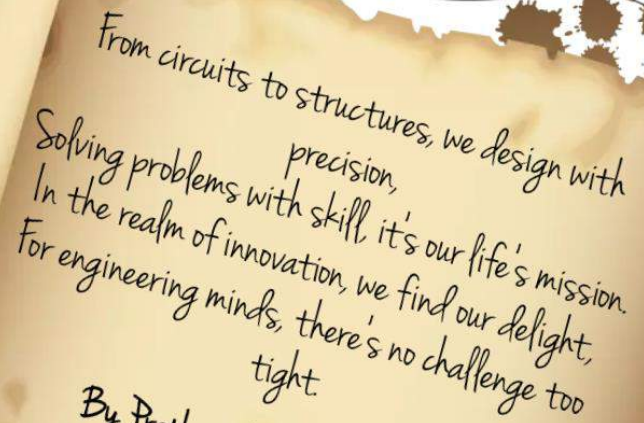 From circuits to structures, we design with
precision,
Solving problems with skill, it's our life's mission.
In the realm of innovation, we find our delight,
For engineering minds, there's no challenge too
tight.
By